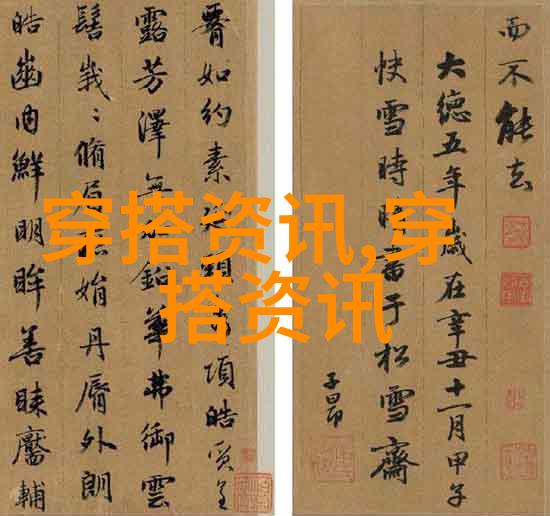 穿搭资讯,穿
搭资讯
腰如約素延頸秀項皓質呈
露芳澤無加鉛華弗御雲
髻峩〻脩眉聯娟丹脣外朗
皓齒内鮮明眸善睞靨輔
而不能去
大德五年歲在辛丑十一月甲子
快雪時晴書于松雪齋
子昂